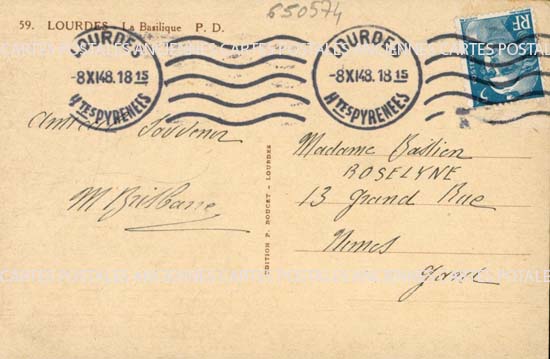 59. LOURDES - La Basilique P. D.
650574
LOURDES
-8XI48.18 15
HTES PYRENEES
LOURDES
-8XI48.18 15
HTES PYRENEES
RF
CARTES POSTALES ANCIENNES CARTES POSTALES ANCIENNES CARTES POSTALES
Souvenir
M Brisbane
EDITION P. DOUCET - LOURDES
Madame Bastien
ROSELYNE
13 Grand Rue
Nimes
Gard
CARTES POSTALES ANCIENNES CARTES POSTALES ANCIENNES CARTES POSTALES